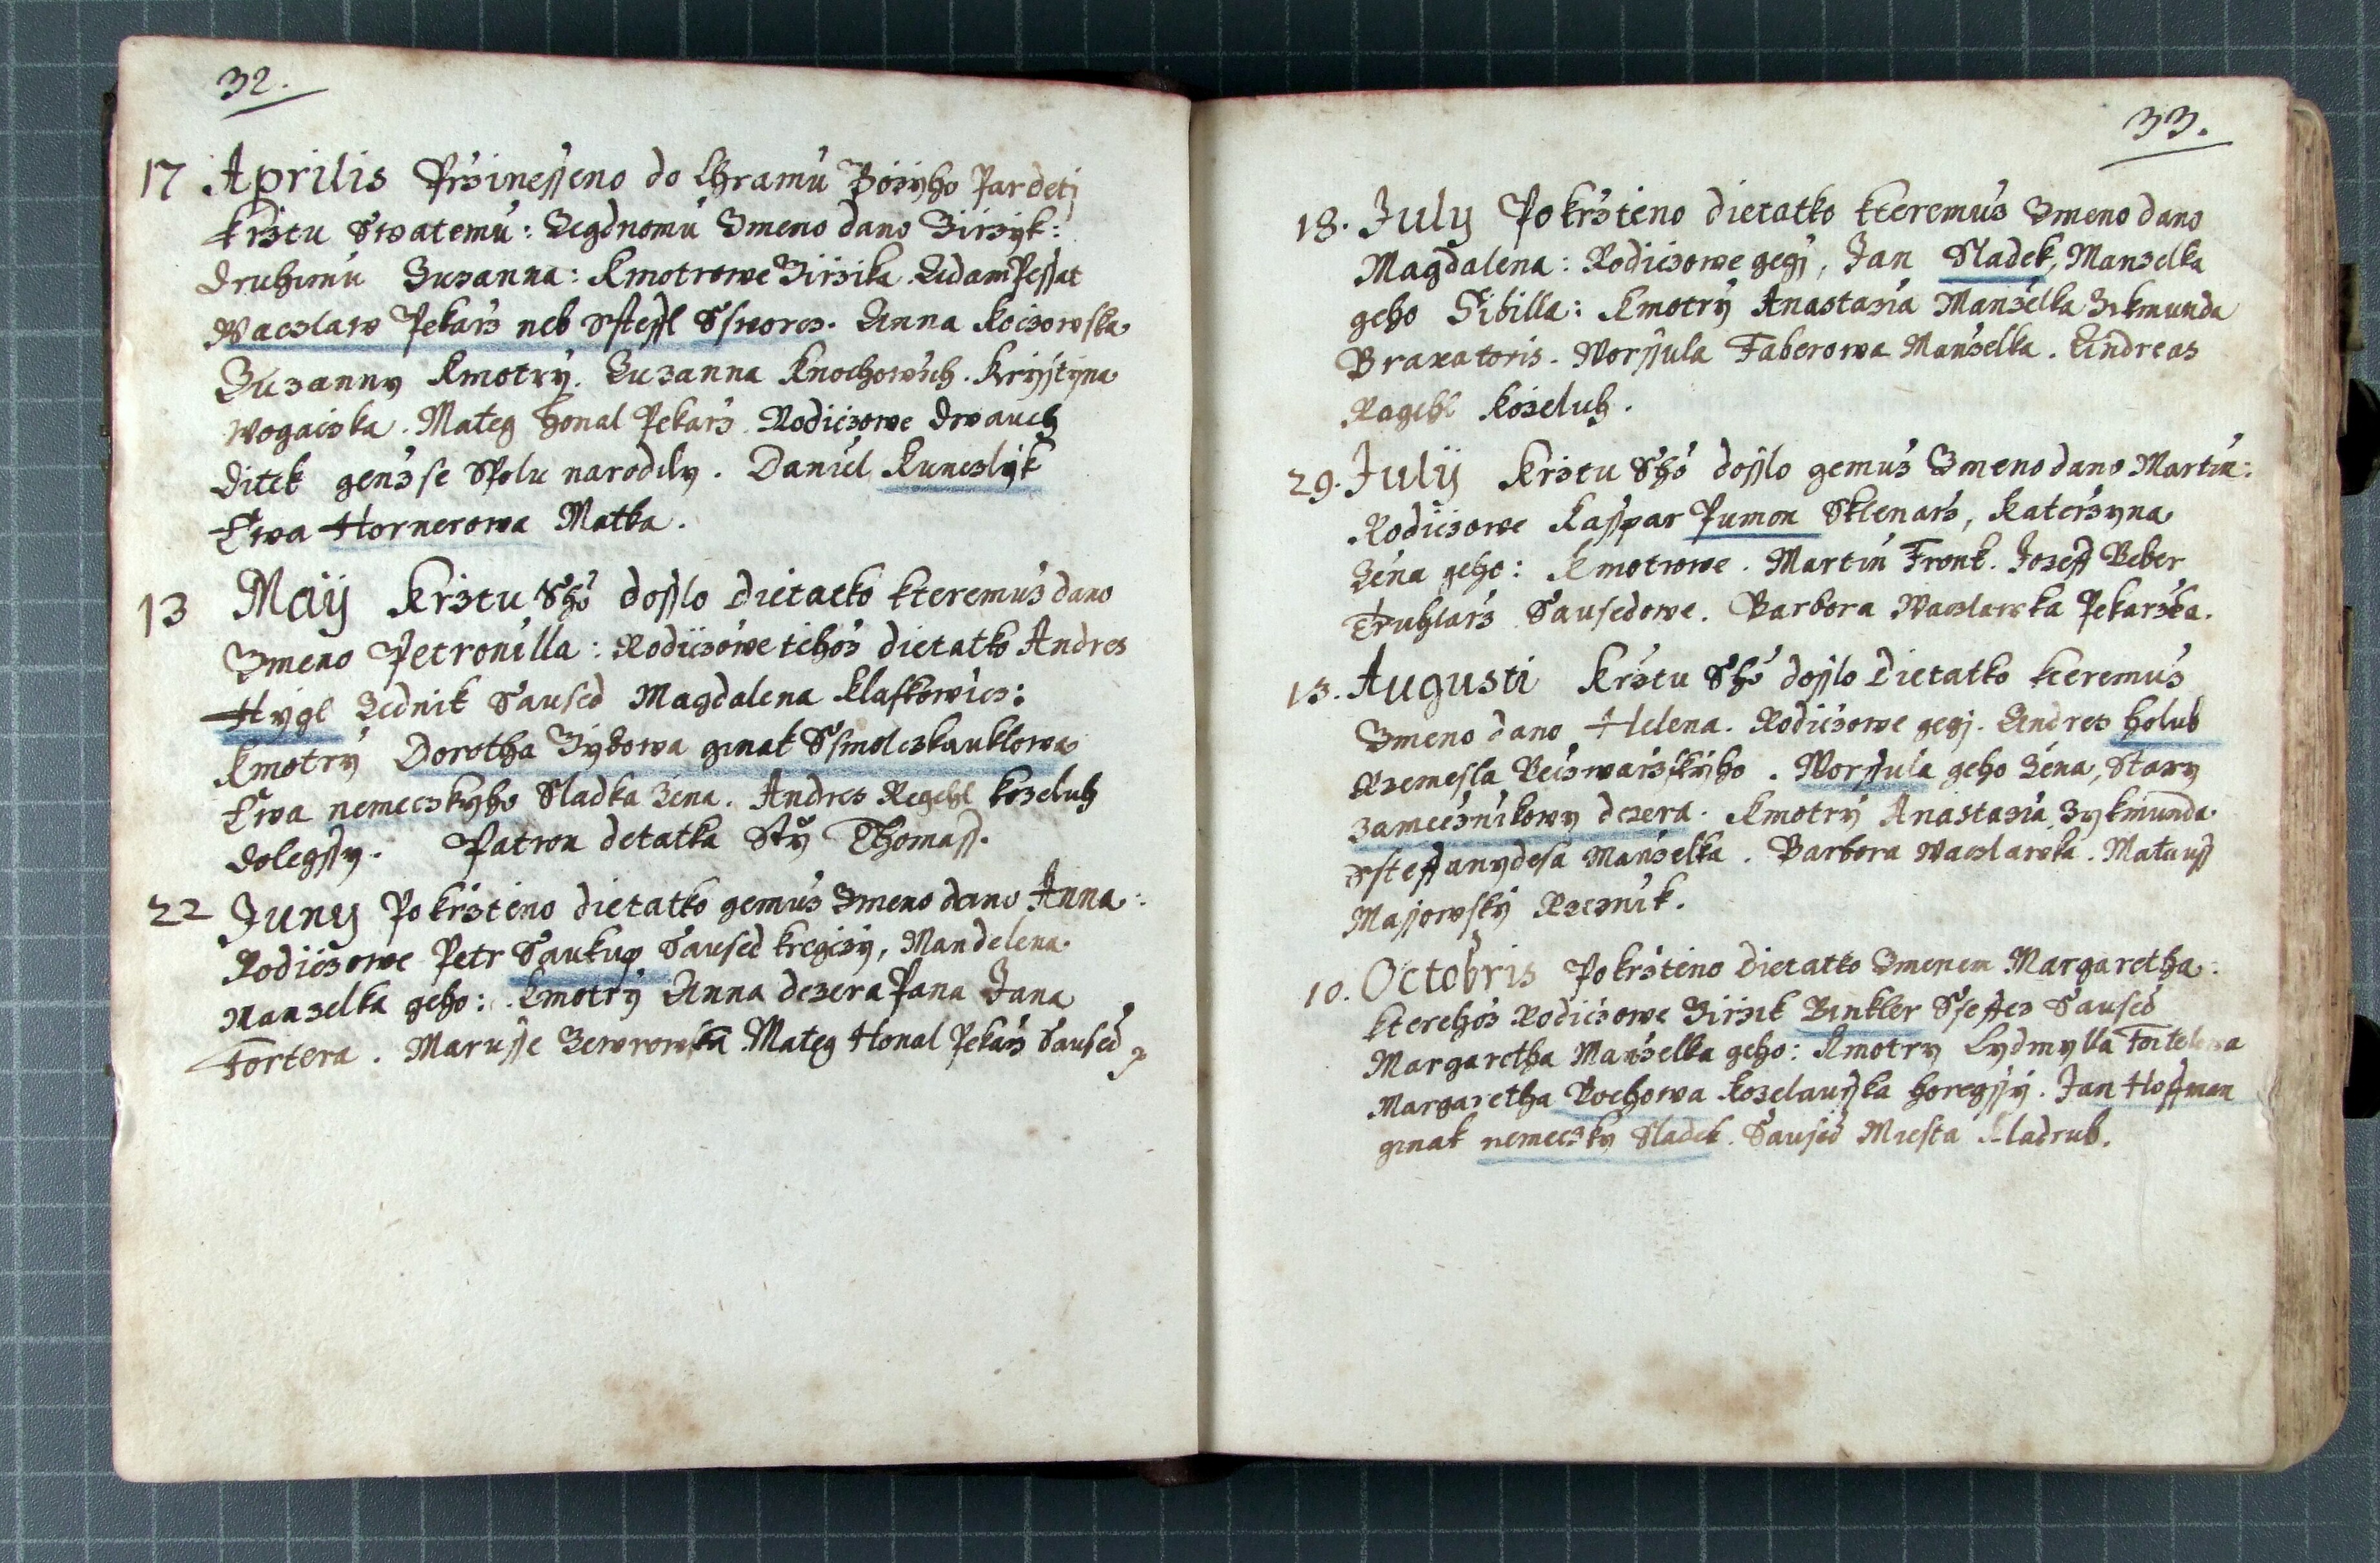 32.
17 Aprilis Prźineſſeno do Chramú Bóżyho Par detj
krżtu Swatemú: Gegdnomú Gmeno dano Girżyk:
druhimú Zuzanna: Kmotrowe Girżika. Adam Peſſat
Waczlaw Pekarż neb Ssteffl Ssworcz. Anna Koczowska
Zuzanny Kmotrý. Zuzanna Knochowich. Krýſtyna
Wogaczka. Mateg Honal Pekarż Rodiczowe dwauch
Ditek genż se Spolu narodily. Daniel Kunczlýk
Ewa Hornerowa Matka.
13 Maÿ Krżtu Sho doſſlo Dietatko kteremuż dano
Gmeno Petronilla: Rodiczowe tehoż dietatko Andres
Hygl Zednik Saused Magdalena Klaſkowicz:
Kmotrý Dorotha Zýkowa ginak Ssmolczkauklowa
Ewa nemeczkyho Sladka żena. Andres Regehl kożeluh
dolegſſy. Patron detatka Stý Thomaſſ.
22 Juny Pokrżteno dietatko gemuż Gmeno dano Anna:
Rodiczowe Petr Saukup Saused kregczý, Mandelena
Manżelka geho: Kmotrý Anna dczera Pana Jana
Fortera. Maruſſe Mateg Honal Pekarż Saused
33.
18. July Pokrżteno dietatko kteremuż Gmeno dano
Magdalena: Rodiczowe gegj, Jan Sladek, Manżelka
geho Sibilla: Kmotrý Anastazia Manżelka Zikmunda
Braxatoris. Worſſula Faberowa Manżelka. Andreas
Ragehl Kożeluh.
29. Julÿ Krżtu Sho doſſlo gemuż Gmeno dano Martin:
Rodiczowe Kaſſpar Pumon Sklenarż, Katerżyna
żena geho: Kmotrowe. Martin Fronk. Jozeff Beber
Truhlarż Sausedowe. Barbora Waczlawka Pekarżka.
13. Augusti Krżtu Sho doſſlo Dietatko kteremuż
Gmeno dano Helena. Rodiczowe gegj. Andres Holub
Rzemeſla Beczwarżſkýho. Worſſula geho żena, Stary
zamecznikowy dczera. Kmotrý Anastazia Zykmunda
Ssteffanydesa Manżelka. Barbora Waczlawka. Matauſſ
Maſſowſký Rzeznik.
10. Octobris Pokrżteno Dietatko Gmenem Margaretha:
kterehoż Rodiczowe Girżik Binkler Sseffcz Saused
Margaretha Manżelka geho: Kmotry Lydmylla
Margaretha Bochowa Kozelauſſka horegſſý. Jan Hoffman
ginak nemeczky Sladek. Saused Mieſta Kladrub.